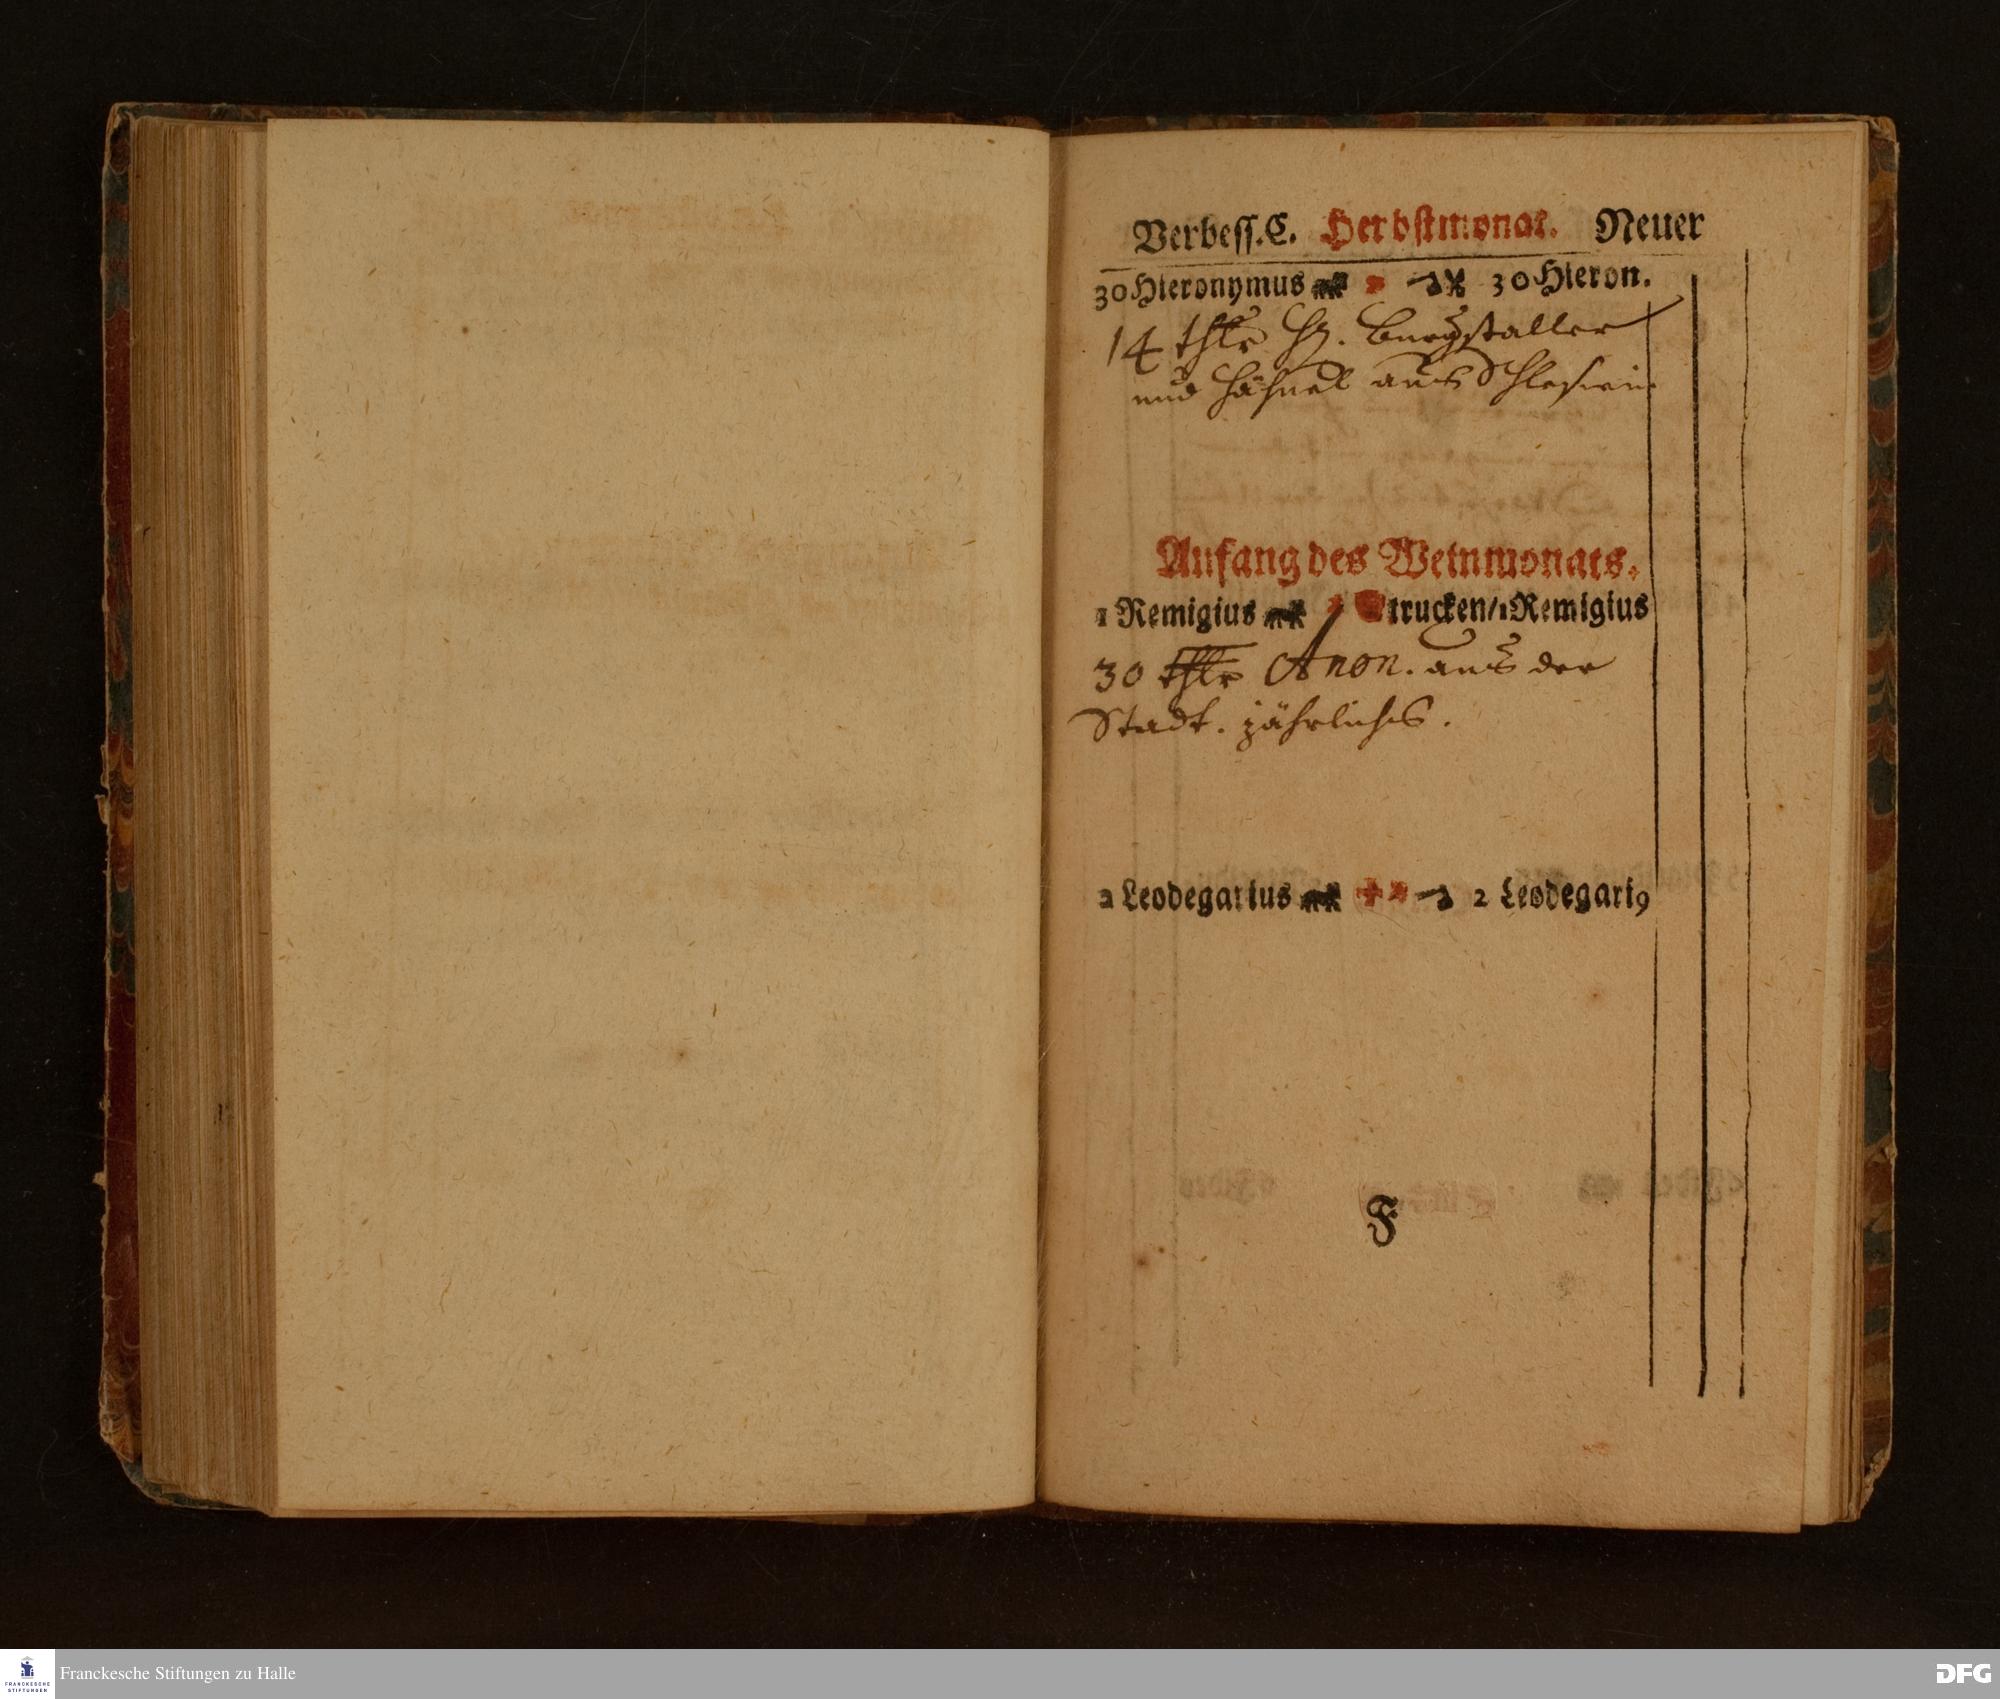 Verbess. C. Herbstmonat. Neuer
30 Hieronymus 30 Hieron.
14 thlr H. Burgstaller
und Hähnel aus Schlesin
Anfang des Weinmonats.
1 Remigius trucken/ 1 Remigius
30 thlr Anon. aus der
Stadt. jährliches.
2 Leodegarius 2 Leodegari9
F
FRANCKESCHE
STIFTUNGEN
Franckesche Stiftungen zu Halle
DFG